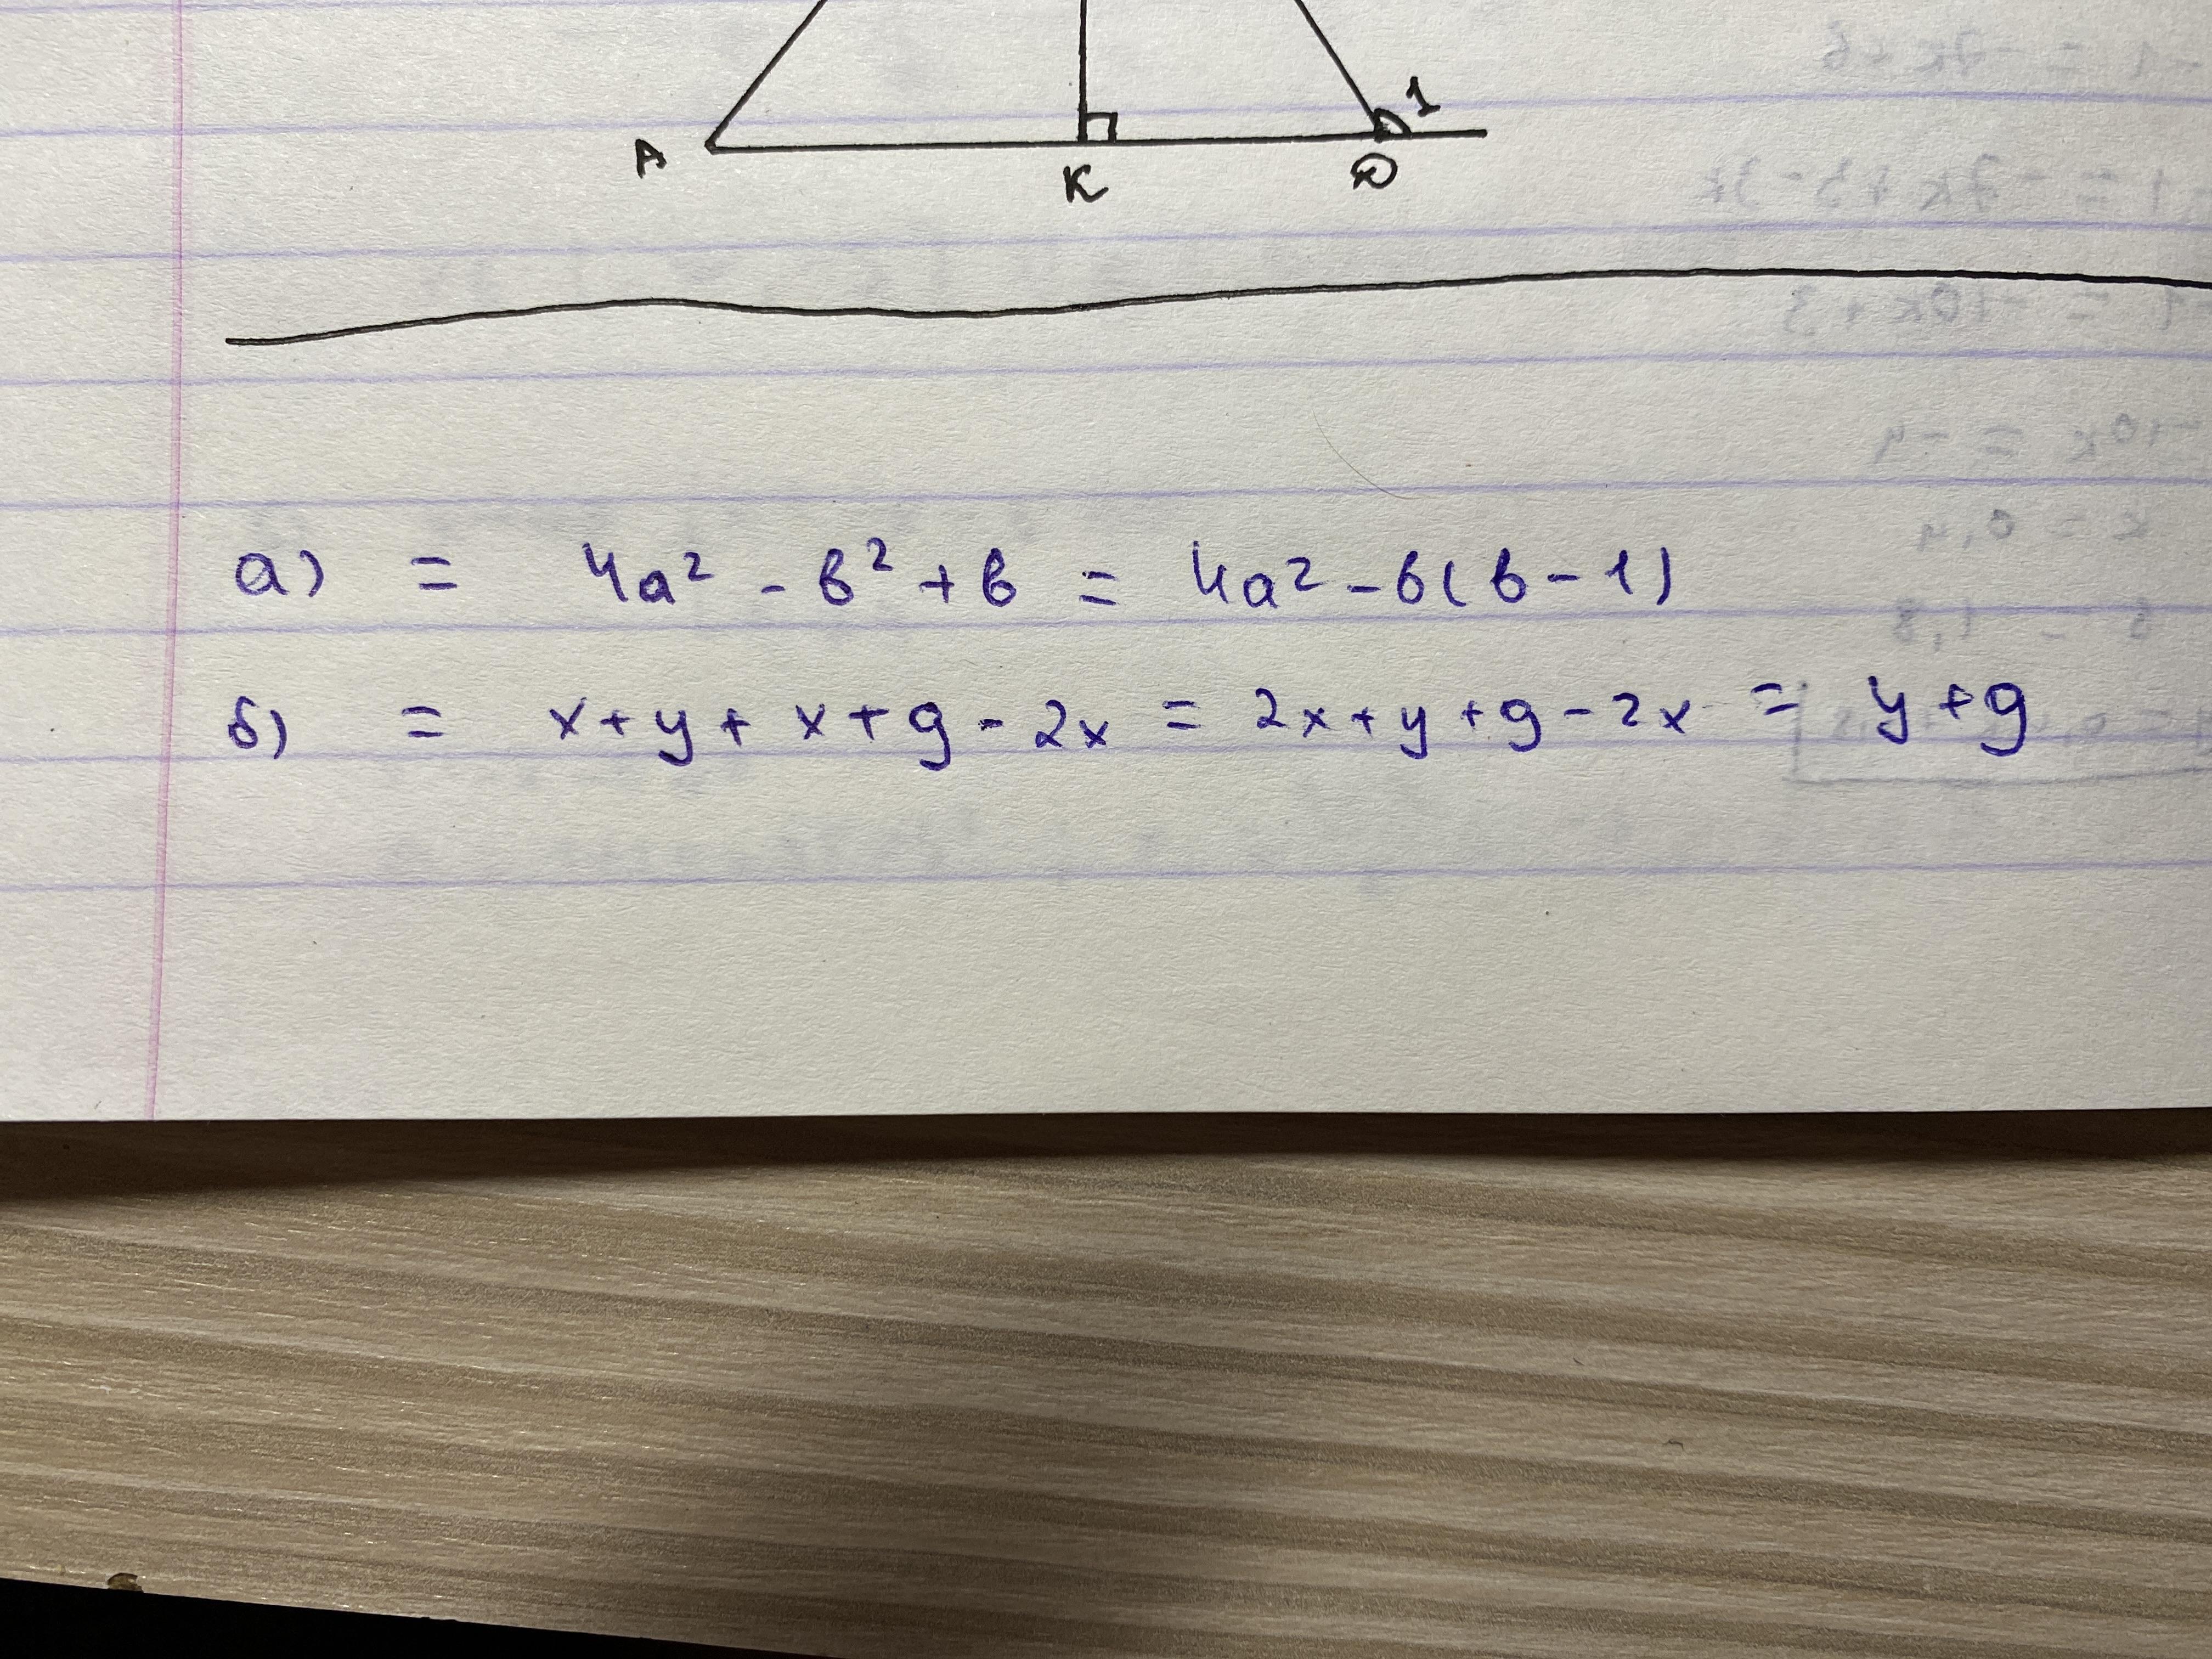 1
A K D
а) = 4a² - b² + b = 4a² - b(b - 1)
б) = x + y + x + g - 2x = 2x + y + g - 2x = y + g